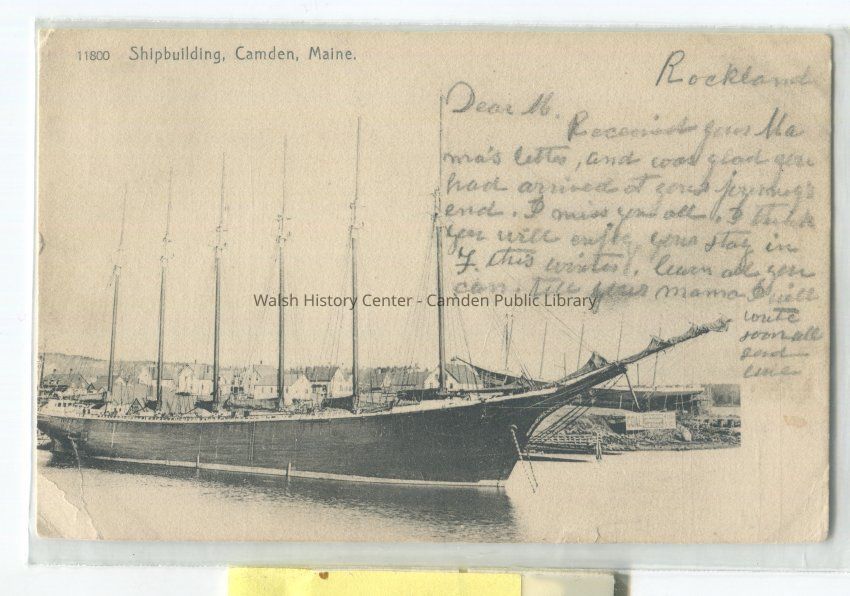 11800 Shipbuilding, Camden, Maine.
Rockland
Dear M.
Received your Ma
ma's letter, and was glad you
had arrived at your journeys
end. I miss you all. I think
you will enjoy your stay in
F. this winter. learn all you
can. tell your mama I will
write
soon all
send
love
Walsh History Center - Camden Public Library